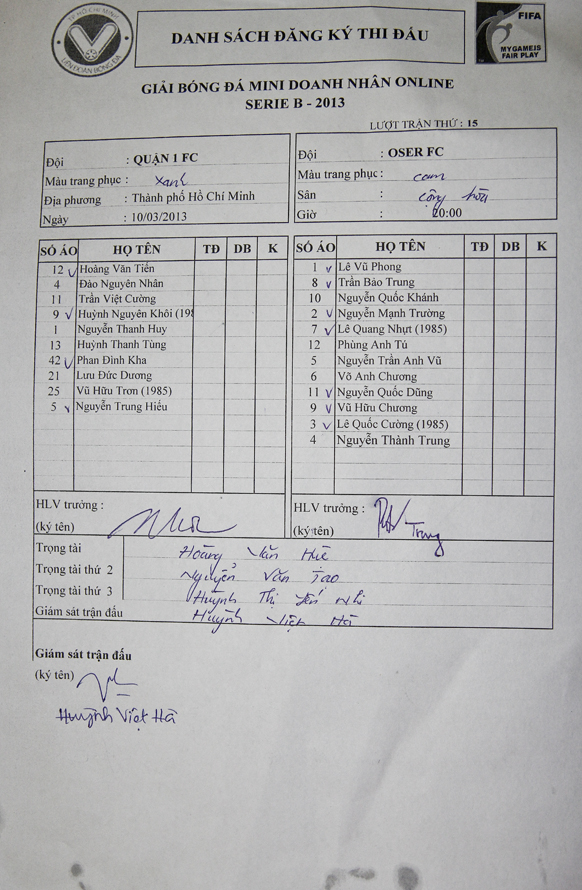 TP HỒ CHÍ MINH
LIÊN ĐOÀN BÓNG ĐÁ
DANH SÁCH ĐĂNG KÝ THI ĐẤU
FIFA
MY GAME IS
FAIR PLAY
GIẢI BÓNG ĐÁ MINI DOANH NHÂN ONLINE
SERIE B - 2013
LƯỢT TRẬN THỨ : 15
Đội : QUẬN 1 FC
Màu trang phục : xanh
Địa phương : Thành phố Hồ Chí Minh
Ngày : 10/03/2013
Đội : OSER FC
Màu trang phục : cam
Sân : cộng hòa
Giờ 20:00
SỐ ÁO HỌ TÊN TĐ DB K
12 Hoàng Văn Tiến
4 Đào Nguyên Nhân
11 Trần Việt Cường
9 Huỳnh Nguyên Khôi (198
1 Nguyễn Thanh Huy
13 Huỳnh Thanh Tùng
42 Phan Đình Kha
21 Lưu Đức Dương
25 Vũ Hữu Trơn (1985)
5 Nguyễn Trung Hiếu
SỐ ÁO HỌ TÊN TĐ DB K
1 Lê Vũ Phong
8 Trần Bảo Trung
10 Nguyễn Quốc Khánh
2 Nguyễn Mạnh Trường
7 Lê Quang Nhựt (1985)
12 Phùng Anh Tú
5 Nguyễn Trần Anh Vũ
6 Võ Anh Chương
11 Nguyễn Quốc Dũng
9 Vũ Hữu Chương
3 Lê Quốc Cường (1985)
4 Nguyễn Thành Trung
HLV trưởng :
(ký tên)
HLV trưởng :
(ký tên) Trung
Trọng tài Hoàng Văn Huê
Trọng tài thứ 2 Nguyễn Văn Tao
Trọng tài thứ 3 Huỳnh Thị Yến Nhi
Giám sát trận đấu Huỳnh Việt Hà
Giám sát trận đấu
(ký tên)
Huỳnh Việt Hà